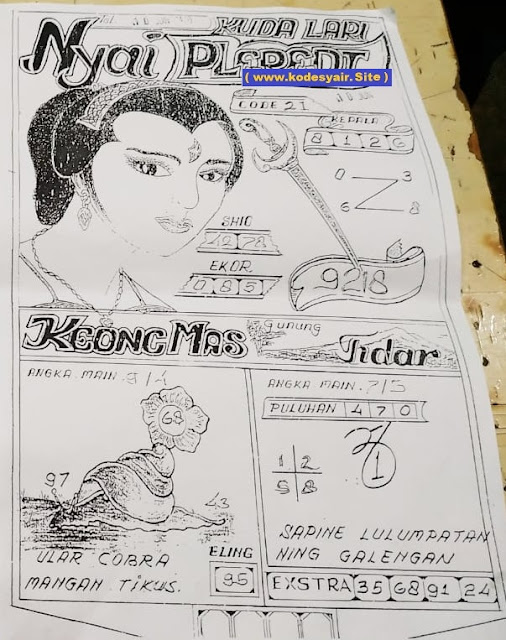 KUDA LARI
Nyai PLEREDT
( www.kodesyair.Site )
CODE 21
KEPALA
8 1 2 6
0 3
6 8
SHIO
EKOR
0 8 5
9218
KEONG MAS
gunung
Tidar
ANGKA MAIN. 9/4
68
97
43
ULAR COBRA
MANGAN TIKUS.
ELING
95
ANGKA MAIN. 7/3
PULUHAN 4 7 0
1 2
5 8
1
SAPINE LULUMPATAN
NING GALENGAN
EXSTRA 35 68 91 24